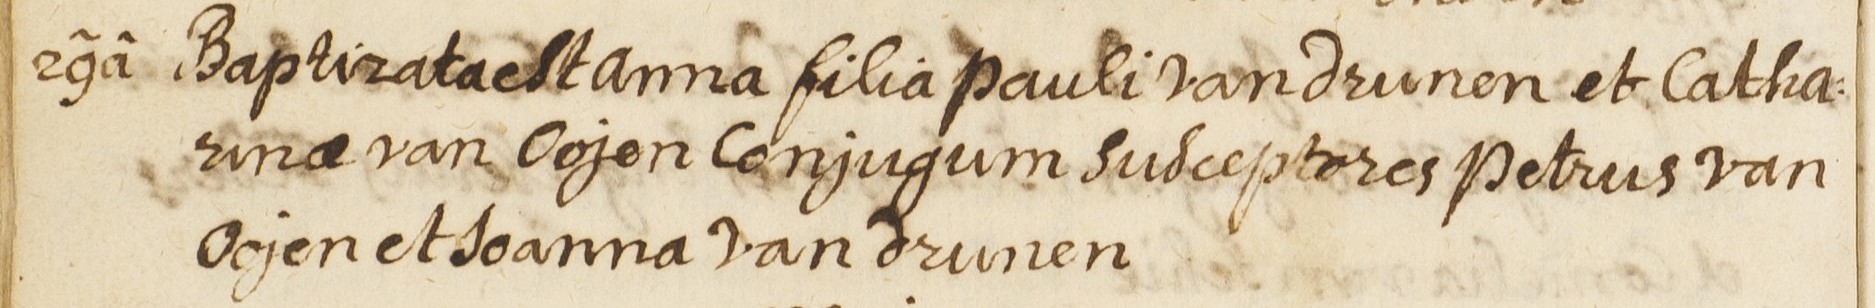 29â Baptizata est Anna filia Pauli van Drunen et Catha:
rinæ van Oojen Conjugum Susceptores Petrus van
Oojen et Joanna van Drunen